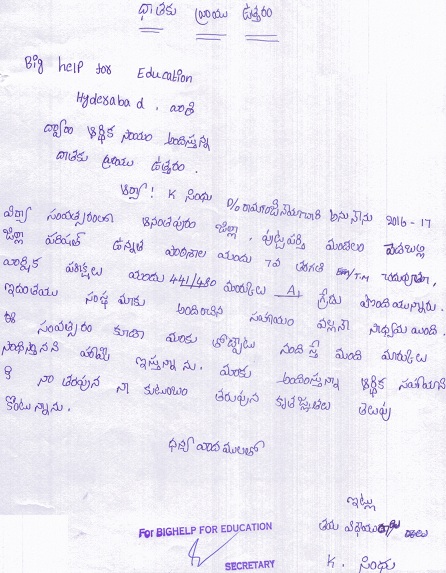 దాతకు వ్రాయు ఉత్తరం
Big help for Education
Hyderabad . వారి
ద్వారా ఆర్థిక సాయం అందిస్తున్న
దాతకు వ్రాయు ఉత్తరం .
ఆర్యా! K సింధు D/o అను నేను 2016 - 17
విద్యా సంవత్సరంలో అనంతపురం జిల్లా , పుట్టపర్తి మండలం
జిల్లా పరిషత్ ఉన్నత పాఠశాల యందు 7వ తరగతి T.M చదువుతూ,
వార్షిక పరీక్షలు యందు 441/480 మార్కులు A1 గ్రేడు పొందియున్నాను.
ఇదంతయు సంస్థ మాకు అందించిన సహాయం వల్లనే సాధ్యమ
ఈ సంవత్సరం కూడా మాకు మంచి మార్కులు
సాధిస్తానని హామీ ఇస్తున్నాను. మాకు అందిస్తున్న ఆర్థిక సహాయాని
కి నా తరపున నా కుటుంబం తరుపున కృతజ్ఞతలు తెలుపు
కొంటున్నాను.
ధన్యవాదములతో
ఇట్లు
తమ విధేయు
K. సింధు
For BIGHELP FOR EDUCATION
SECRETARY